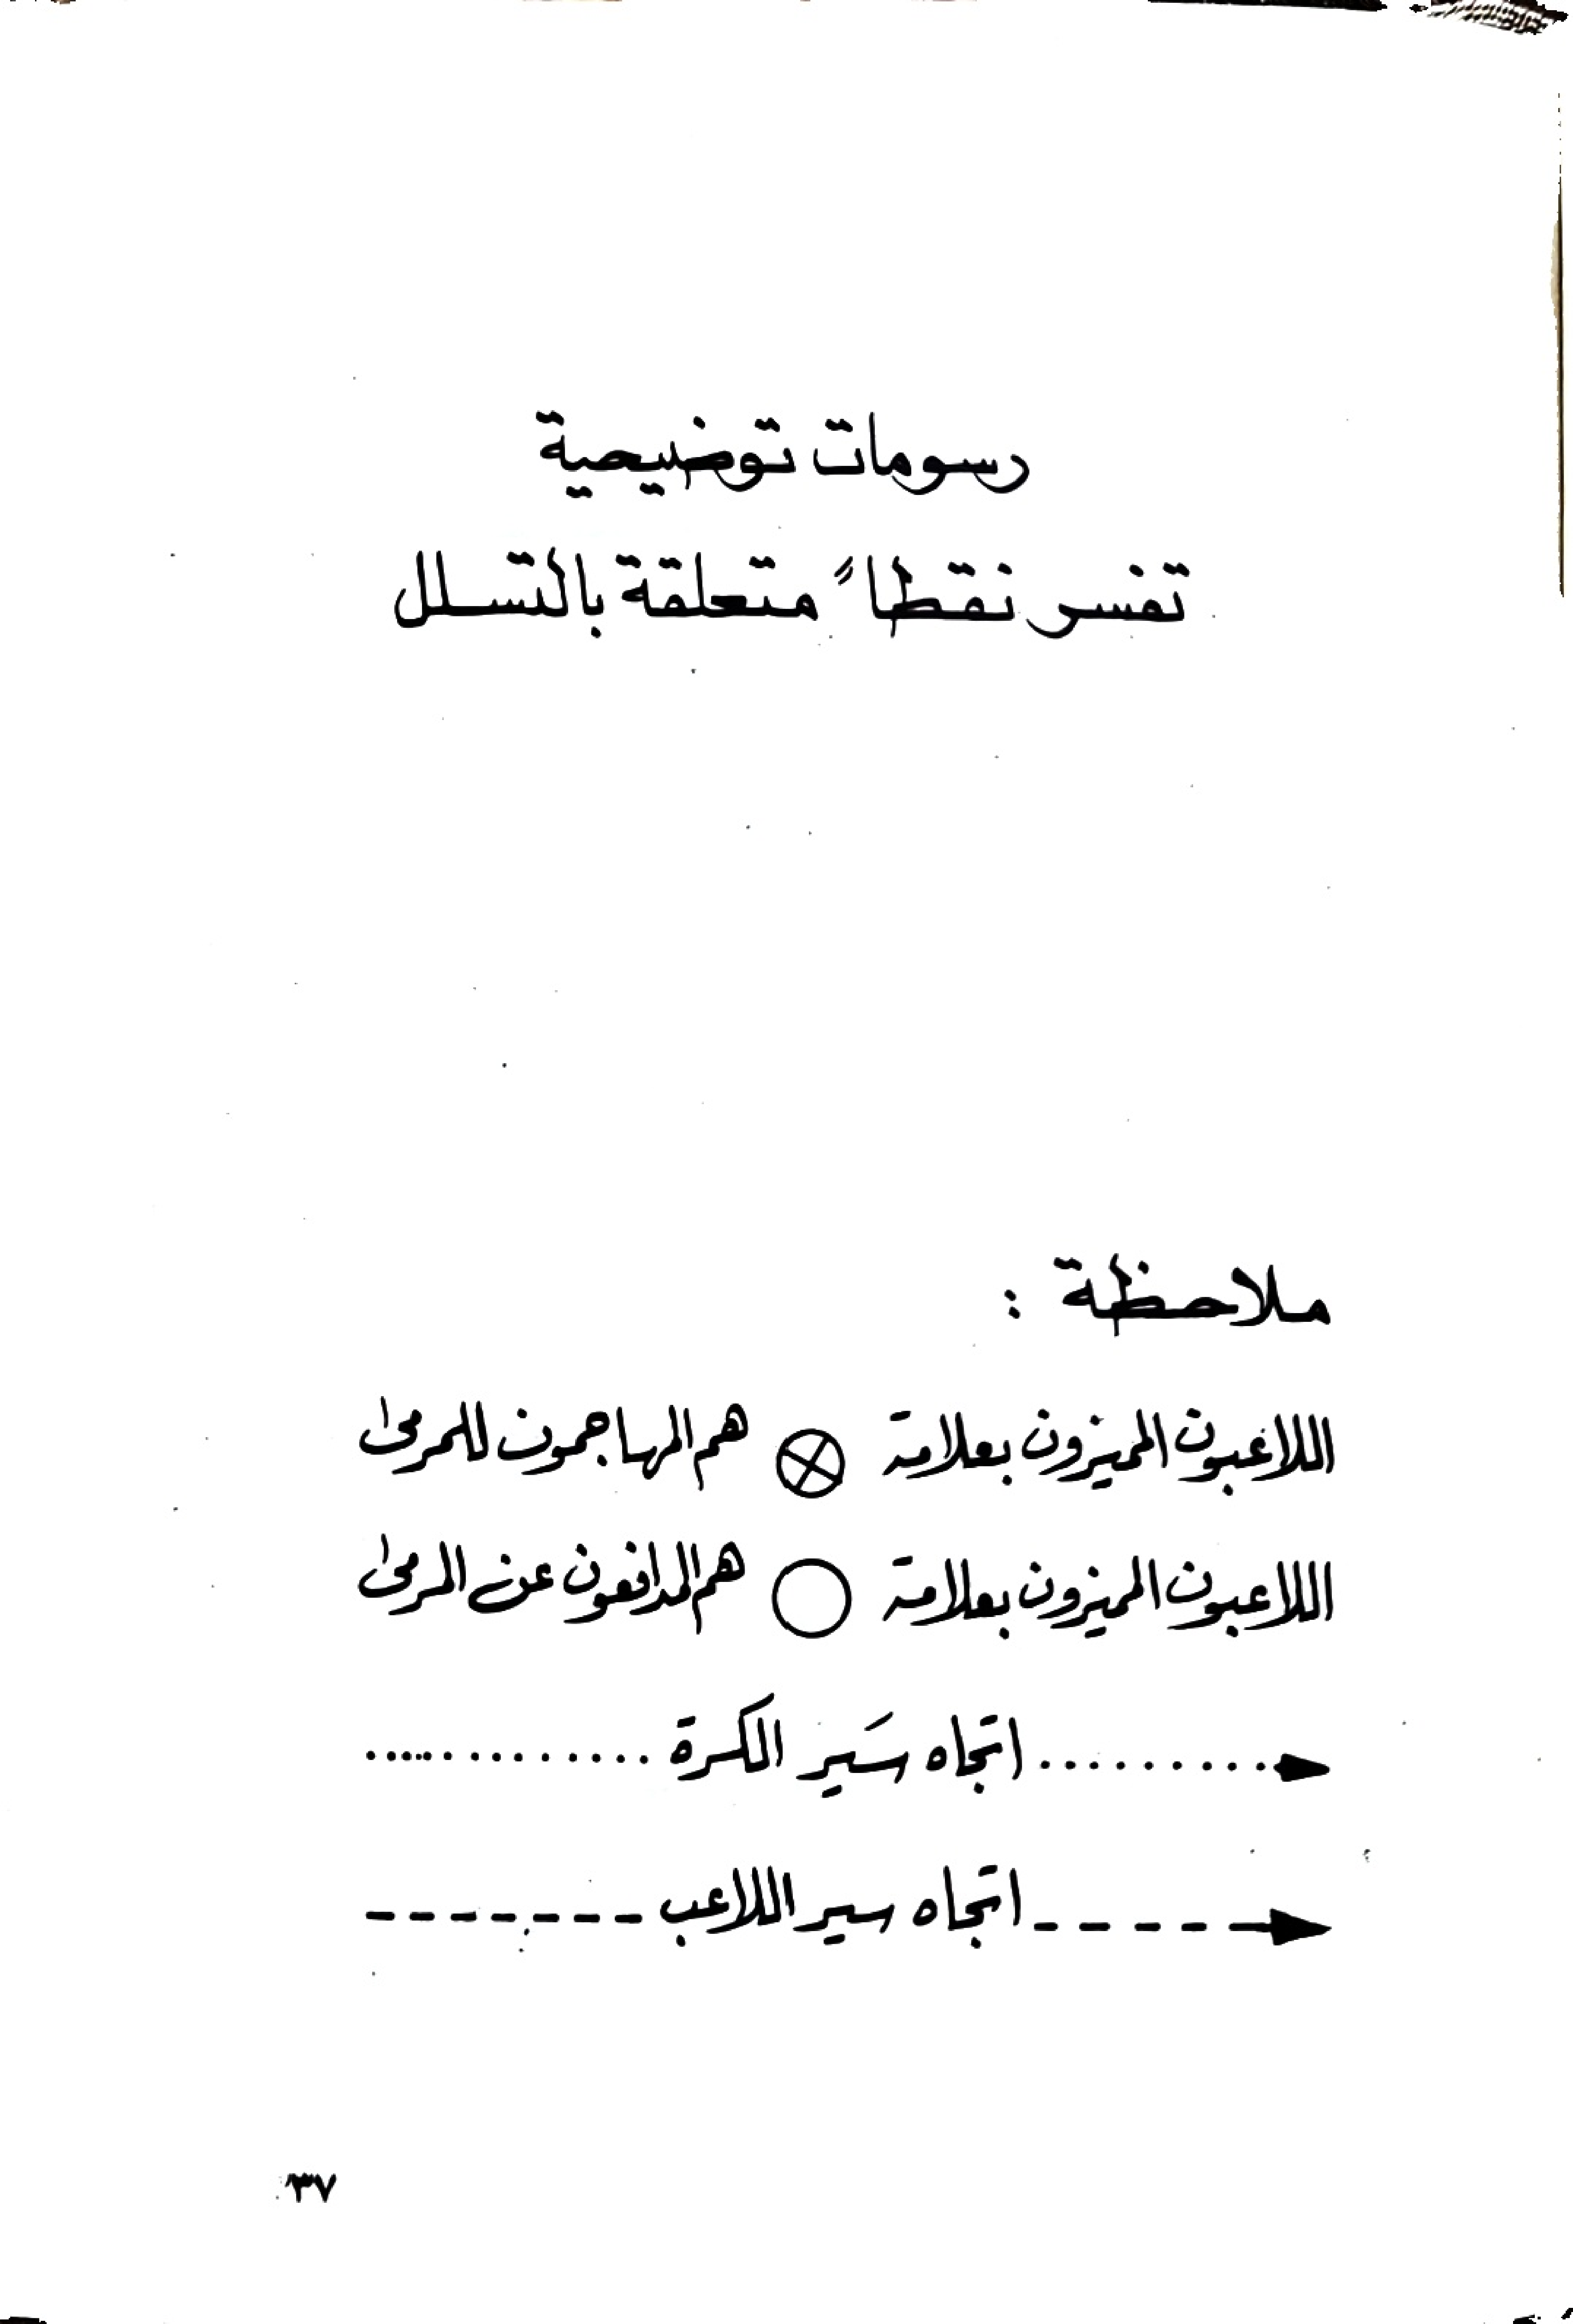 رسومات توضيحية
تفسر نقطاً متعلقة بالتسلل
ملاحظة :
اللاعبون المميزون بعلامة ⊗ هم المهاجمون للمرمى
اللاعبون المميزون بعلامة ○ هم المدافعون عن المرمى
.......... اتجاه سَير الكرة ............
----- اتجاه سير اللاعب -------
٣٧